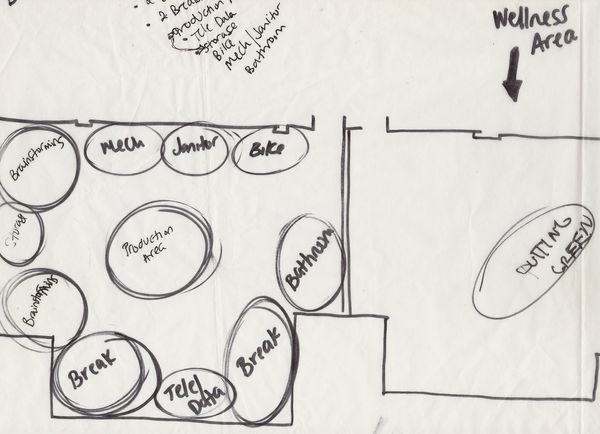 • 2 Break
• production
• Tele Data
• Storage
Bike
Mech/Janitor
Bathroom
Wellness
Area
Brainstorming
Mech
Janitor
Bike
Storage
Production
Area
Bathroom
PUTTING
GREEN
Brainstorming
Break
Tele/
Data
Break